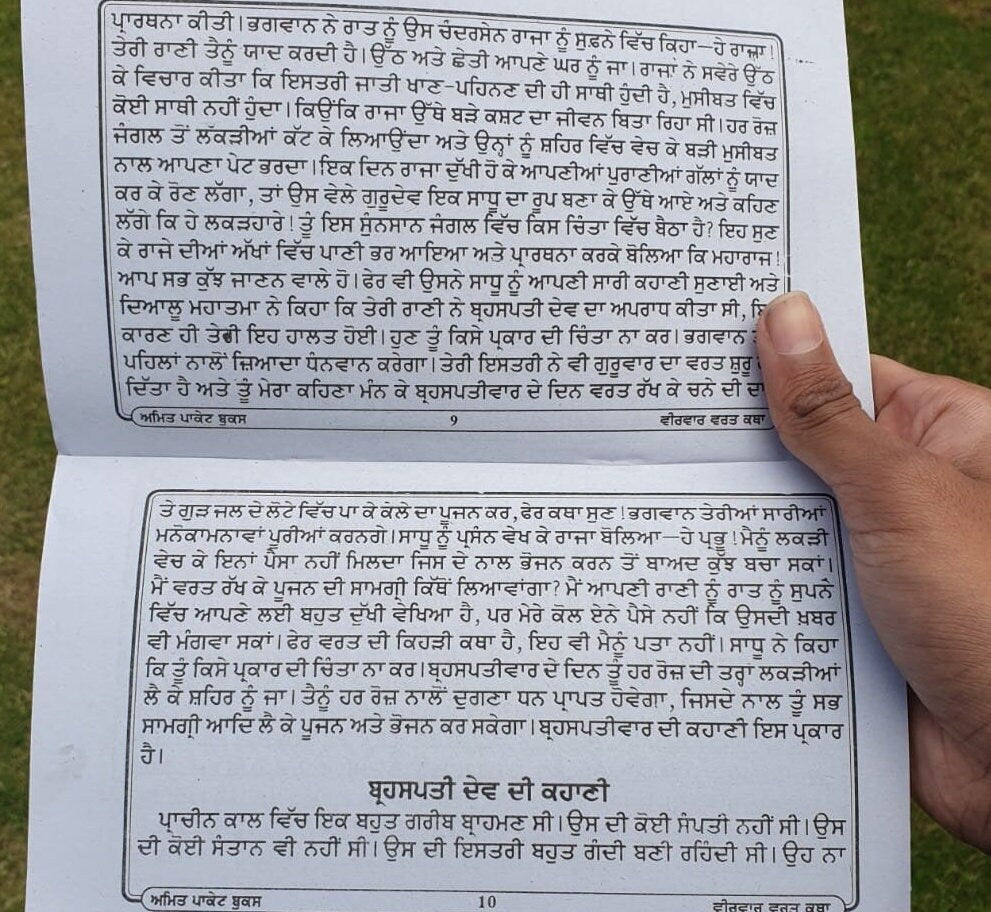 ਪ੍ਰਾਰਥਨਾ ਕੀਤੀ। ਭਗਵਾਨ ਨੇ ਰਾਤ ਨੂੰ ਉਸ ਚੰਦਰਸੇਨ ਰਾਜਾ ਨੂੰ ਸੁਫ਼ਨੇ ਵਿੱਚ ਕਿਹਾ—ਹੇ ਰਾਜਾ!
ਤੇਰੀ ਰਾਣੀ ਤੈਨੂੰ ਯਾਦ ਕਰਦੀ ਹੈ। ਉੱਠ ਅਤੇ ਛੇਤੀ ਆਪਣੇ ਘਰ ਨੂੰ ਜਾ। ਰਾਜਾ ਨੇ ਸਵੇਰੇ ਉੱਠ
ਕੇ ਵਿਚਾਰ ਕੀਤਾ ਕਿ ਇਸਤਰੀ ਜਾਤੀ ਖਾਣ-ਪਹਿਨਣ ਦੀ ਹੀ ਸਾਥੀ ਹੁੰਦੀ ਹੈ, ਮੁਸੀਬਤ ਵਿੱਚ
ਕੋਈ ਸਾਥੀ ਨਹੀਂ ਹੁੰਦਾ। ਕਿਉਂਕਿ ਰਾਜਾ ਉੱਥੇ ਬੜੇ ਕਸ਼ਟ ਦਾ ਜੀਵਨ ਬਿਤਾ ਰਿਹਾ ਸੀ। ਹਰ ਰੋਜ਼
ਜੰਗਲ ਤੋਂ ਲੱਕੜੀਆਂ ਕੱਟ ਕੇ ਲਿਆਉਂਦਾ ਅਤੇ ਉਨ੍ਹਾਂ ਨੂੰ ਸ਼ਹਿਰ ਵਿੱਚ ਵੇਚ ਕੇ ਬੜੀ ਮੁਸੀਬਤ
ਨਾਲ ਆਪਣਾ ਪੇਟ ਭਰਦਾ। ਇਕ ਦਿਨ ਰਾਜਾ ਦੁੱਖੀ ਹੋ ਕੇ ਆਪਣੀਆਂ ਪੁਰਾਣੀਆਂ ਗੱਲਾਂ ਨੂੰ ਯਾਦ
ਕਰ ਕੇ ਰੋਣ ਲੱਗਾ, ਤਾਂ ਉਸ ਵੇਲੇ ਗੁਰੂਦੇਵ ਇਕ ਸਾਧੂ ਦਾ ਰੂਪ ਬਣਾ ਕੇ ਉੱਥੇ ਆਏ ਅਤੇ ਕਹਿਣ
ਲੱਗੇ ਕਿ ਹੇ ਲਕੜਹਾਰੇ! ਤੂੰ ਇਸ ਸੁੰਨਸਾਨ ਜੰਗਲ ਵਿੱਚ ਕਿਸ ਚਿੰਤਾ ਵਿੱਚ ਬੈਠਾ ਹੈ? ਇਹ ਸੁਣ
ਕੇ ਰਾਜੇ ਦੀਆਂ ਅੱਖਾਂ ਵਿੱਚ ਪਾਣੀ ਭਰ ਆਇਆ ਅਤੇ ਪ੍ਰਾਰਥਨਾ ਕਰਕੇ ਬੋਲਿਆ ਕਿ ਮਹਾਰਾਜ!
ਆਪ ਸਭ ਕੁੱਝ ਜਾਣਨ ਵਾਲੇ ਹੋ। ਫੇਰ ਵੀ ਉਸਨੇ ਸਾਧੂ ਨੂੰ ਆਪਣੀ ਸਾਰੀ ਕਹਾਣੀ ਸੁਣਾਈ ਅਤੇ
ਦਿਆਲੂ ਮਹਾਤਮਾ ਨੇ ਕਿਹਾ ਕਿ ਤੇਰੀ ਰਾਣੀ ਨੇ ਬ੍ਰਹਸਪਤੀ ਦੇਵ ਦਾ ਅਪਰਾਧ ਕੀਤਾ ਸੀ,
ਕਾਰਣ ਹੀ ਤੇਰੀ ਇਹ ਹਾਲਤ ਹੋਈ। ਹੁਣ ਤੂੰ ਕਿਸੇ ਪ੍ਰਕਾਰ ਦੀ ਚਿੰਤਾ ਨਾ ਕਰ। ਭਗਵਾਨ
ਪਹਿਲਾਂ ਨਾਲੋਂ ਜ਼ਿਆਦਾ ਧੰਨਵਾਨ ਕਰੇਗਾ। ਤੇਰੀ ਇਸਤਰੀ ਨੇ ਵੀ ਗੁਰੂਵਾਰ ਦਾ ਵਰਤ ਸ਼ੁਰੂ
ਦਿੱਤਾ ਹੈ ਅਤੇ ਤੂੰ ਮੇਰਾ ਕਹਿਣਾ ਮੰਨ ਕੇ ਬ੍ਰਹਸਪਤੀਵਾਰ ਦੇ ਦਿਨ ਵਰਤ ਰੱਖ ਕੇ ਚਨੇ ਦੀ
ਅਮਿਤ ਪਾਕੇਟ ਬੁਕਸ 9 ਵੀਰਵਾਰ ਵਰਤ ਕਥਾ
ਤੇ ਗੁੜ ਜਲ ਦੇ ਲੋਟੇ ਵਿੱਚ ਪਾ ਕੇ ਕੇਲੇ ਦਾ ਪੂਜਨ ਕਰ, ਫੇਰ ਕਥਾ ਸੁਣ! ਭਗਵਾਨ ਤੇਰੀਆਂ ਸਾਰੀਆਂ
ਮਨੋਕਾਮਨਾਵਾਂ ਪੂਰੀਆਂ ਕਰਨਗੇ। ਸਾਧੂ ਨੂੰ ਪ੍ਰਸੰਨ ਵੇਖ ਕੇ ਰਾਜਾ ਬੋਲਿਆ—ਹੇ ਪ੍ਰਭੂ! ਮੈਨੂੰ ਲਕੜੀ
ਵੇਚ ਕੇ ਇਨਾਂ ਪੈਸਾ ਨਹੀਂ ਮਿਲਦਾ ਜਿਸ ਦੇ ਨਾਲ ਭੋਜਨ ਕਰਨ ਤੋਂ ਬਾਅਦ ਕੁੱਝ ਬਚਾ ਸਕਾਂ।
ਮੈਂ ਵਰਤ ਰੱਖ ਕੇ ਪੂਜਨ ਦੀ ਸਾਮਗ੍ਰੀ ਕਿੱਥੋਂ ਲਿਆਵਾਂਗਾ? ਮੈਂ ਆਪਣੀ ਰਾਣੀ ਨੂੰ ਰਾਤ ਨੂੰ ਸੁਪਨੇ
ਵਿੱਚ ਆਪਣੇ ਲਈ ਬਹੁਤ ਦੁੱਖੀ ਵੇਖਿਆ ਹੈ, ਪਰ ਮੇਰੇ ਕੋਲ ਏਨੇ ਪੈਸੇ ਨਹੀਂ ਕਿ ਉਸਦੀ ਖ਼ਬਰ
ਵੀ ਮੰਗਵਾ ਸਕਾਂ। ਫੇਰ ਵਰਤ ਦੀ ਕਿਹੜੀ ਕਥਾ ਹੈ, ਇਹ ਵੀ ਮੈਨੂੰ ਪਤਾ ਨਹੀਂ। ਸਾਧੂ ਨੇ ਕਿਹਾ
ਕਿ ਤੂੰ ਕਿਸੇ ਪ੍ਰਕਾਰ ਦੀ ਚਿੰਤਾ ਨਾ ਕਰ। ਬ੍ਰਹਸਪਤੀਵਾਰ ਦੇ ਦਿਨ ਤੂੰ ਹਰ ਰੋਜ਼ ਦੀ ਤਰ੍ਹਾਂ ਲਕੜੀਆਂ
ਲੈ ਕੇ ਸ਼ਹਿਰ ਨੂੰ ਜਾ। ਤੈਨੂੰ ਹਰ ਰੋਜ਼ ਨਾਲੋਂ ਦੁਗਣਾ ਧਨ ਪ੍ਰਾਪਤ ਹੋਵੇਗਾ, ਜਿਸਦੇ ਨਾਲ ਤੂੰ ਸਭ
ਸਾਮਗ੍ਰੀ ਆਦਿ ਲੈ ਕੇ ਪੂਜਨ ਅਤੇ ਭੋਜਨ ਕਰ ਸਕੇਗਾ। ਬ੍ਰਹਸਪਤੀਵਾਰ ਦੀ ਕਹਾਣੀ ਇਸ ਪ੍ਰਕਾਰ
ਹੈ।
ਬ੍ਰਹਸਪਤੀ ਦੇਵ ਦੀ ਕਹਾਣੀ
ਪ੍ਰਾਚੀਨ ਕਾਲ ਵਿੱਚ ਇਕ ਬਹੁਤ ਗਰੀਬ ਬ੍ਰਾਹਮਣ ਸੀ। ਉਸ ਦੀ ਕੋਈ ਸੰਪਤੀ ਨਹੀਂ ਸੀ। ਉਸ
ਦੀ ਕੋਈ ਸੰਤਾਨ ਵੀ ਨਹੀਂ ਸੀ। ਉਸ ਦੀ ਇਸਤਰੀ ਬਹੁਤ ਗੰਦੀ ਬਣੀ ਰਹਿੰਦੀ ਸੀ। ਉਹ ਨਾ
ਅਮਿਤ ਪਾਕੇਟ ਬੁਕਸ 10 ਵੀਰਵਾਰ ਵਰਤ ਕਥਾ